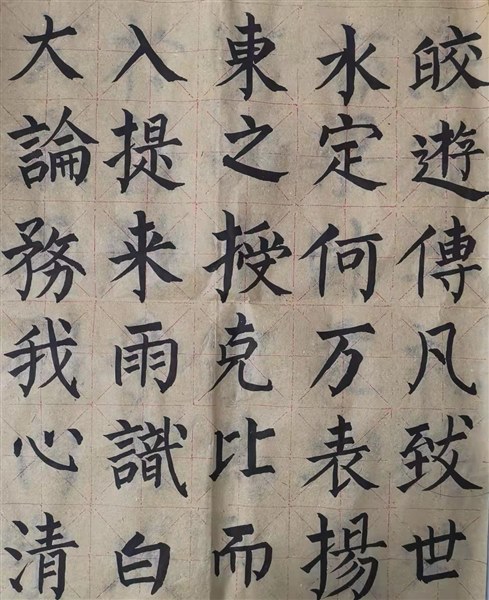 皎遊傳凡致世
水定何万表揚
東之授克比而
入提来雨識白
大論務我心清